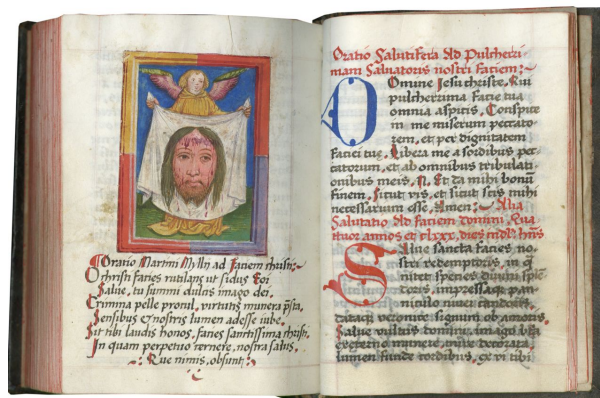 Oratio Martini Mylln ad Faciem christi:
O christi facies rutilans ut sidus Eoi
Salue, tu summi es imago dei.
Crimina pelle pronul, virtutis munera
Sensibus & nostris lumen adesse iube.
Sit tibi laudis honos, facies sanctissima christi
In quam perpetuo cernere, nostra salus.
Que nimis, obsunt
Oratio Salutifera Ad Pulcherri-
mam Saluatoris nostri Faciem:
Domine Jesu christe, Cui
pulcherrima Facie tua
omnia aspicis, Conspice
in me miserum peccato-
rem, et per dignitatem
faciei tue, Libera me a sordibus pec-
catorum, et ab omnibus tribulati-
onibus meis, Et da mihi bonu
finem, Sicut vis, et sicut scis mihi
necessarium esse, Amen: Alia
Salutatio Ad Faciem domini, Qua
tuor annos et clxxx, dies
Salue sancta facies, no-
stri redemptoris, in q
nitet species diuini splen-
doris, impressaque pan-
niculo niuei candoris,
dataque veronice signum ob amoris.
Salue vultus domini, imago
munere, decorata
lumen funde cordibus, ex vi tibi